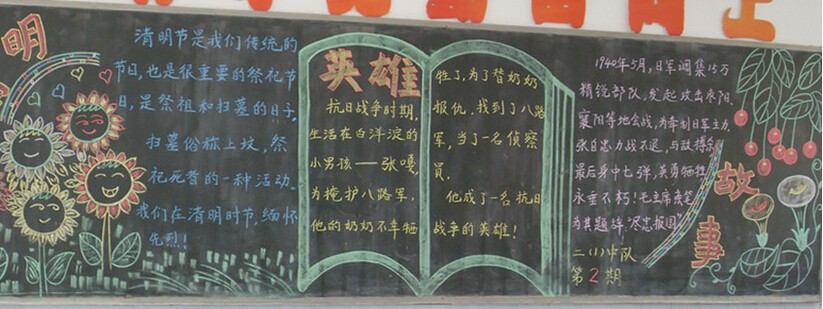 明
清明节是我们传统的
节日,也是很重要的祭祀节
日,是祭祖和扫墓的日子,
扫墓俗称上坟,祭
祀死者的一种活动。
我们在清明时节,缅怀
先烈!
英雄
抗日战争时期,
生活在白洋淀的
小男孩——张嘎,
为掩护八路军,
他的奶奶不幸牺
牲了,为了替奶奶
报仇,找到了八路
军,当了一名侦察
员。
他成了一名抗日
战争的英雄!
1940年5月,日军调集15万
精锐部队,发起攻击枣阳、
襄阳等地会战,为牵制日军主力,
张自忠力战不退,与敌搏杀,
最后身中七弹,英勇牺牲,
永垂不朽!毛主席亲笔
为其题辞:“尽忠报国”
故
事
二(1)中队
第2期